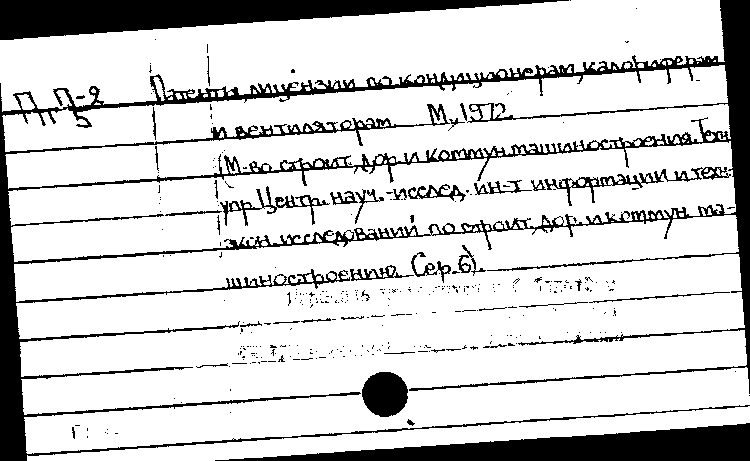 Пп П-2
5
Патенты, лицензии по кондиционерам, калориферам
и вентиляторам. М., 1972.
(М-во строит., дор. и коммун. машиностроения. Техн.
упр. Центр. науч.-исслед. ин-т информации и техн.-
экон. исследований по строит., дор. и коммун. ма-
шиностроению. Сер. 6).